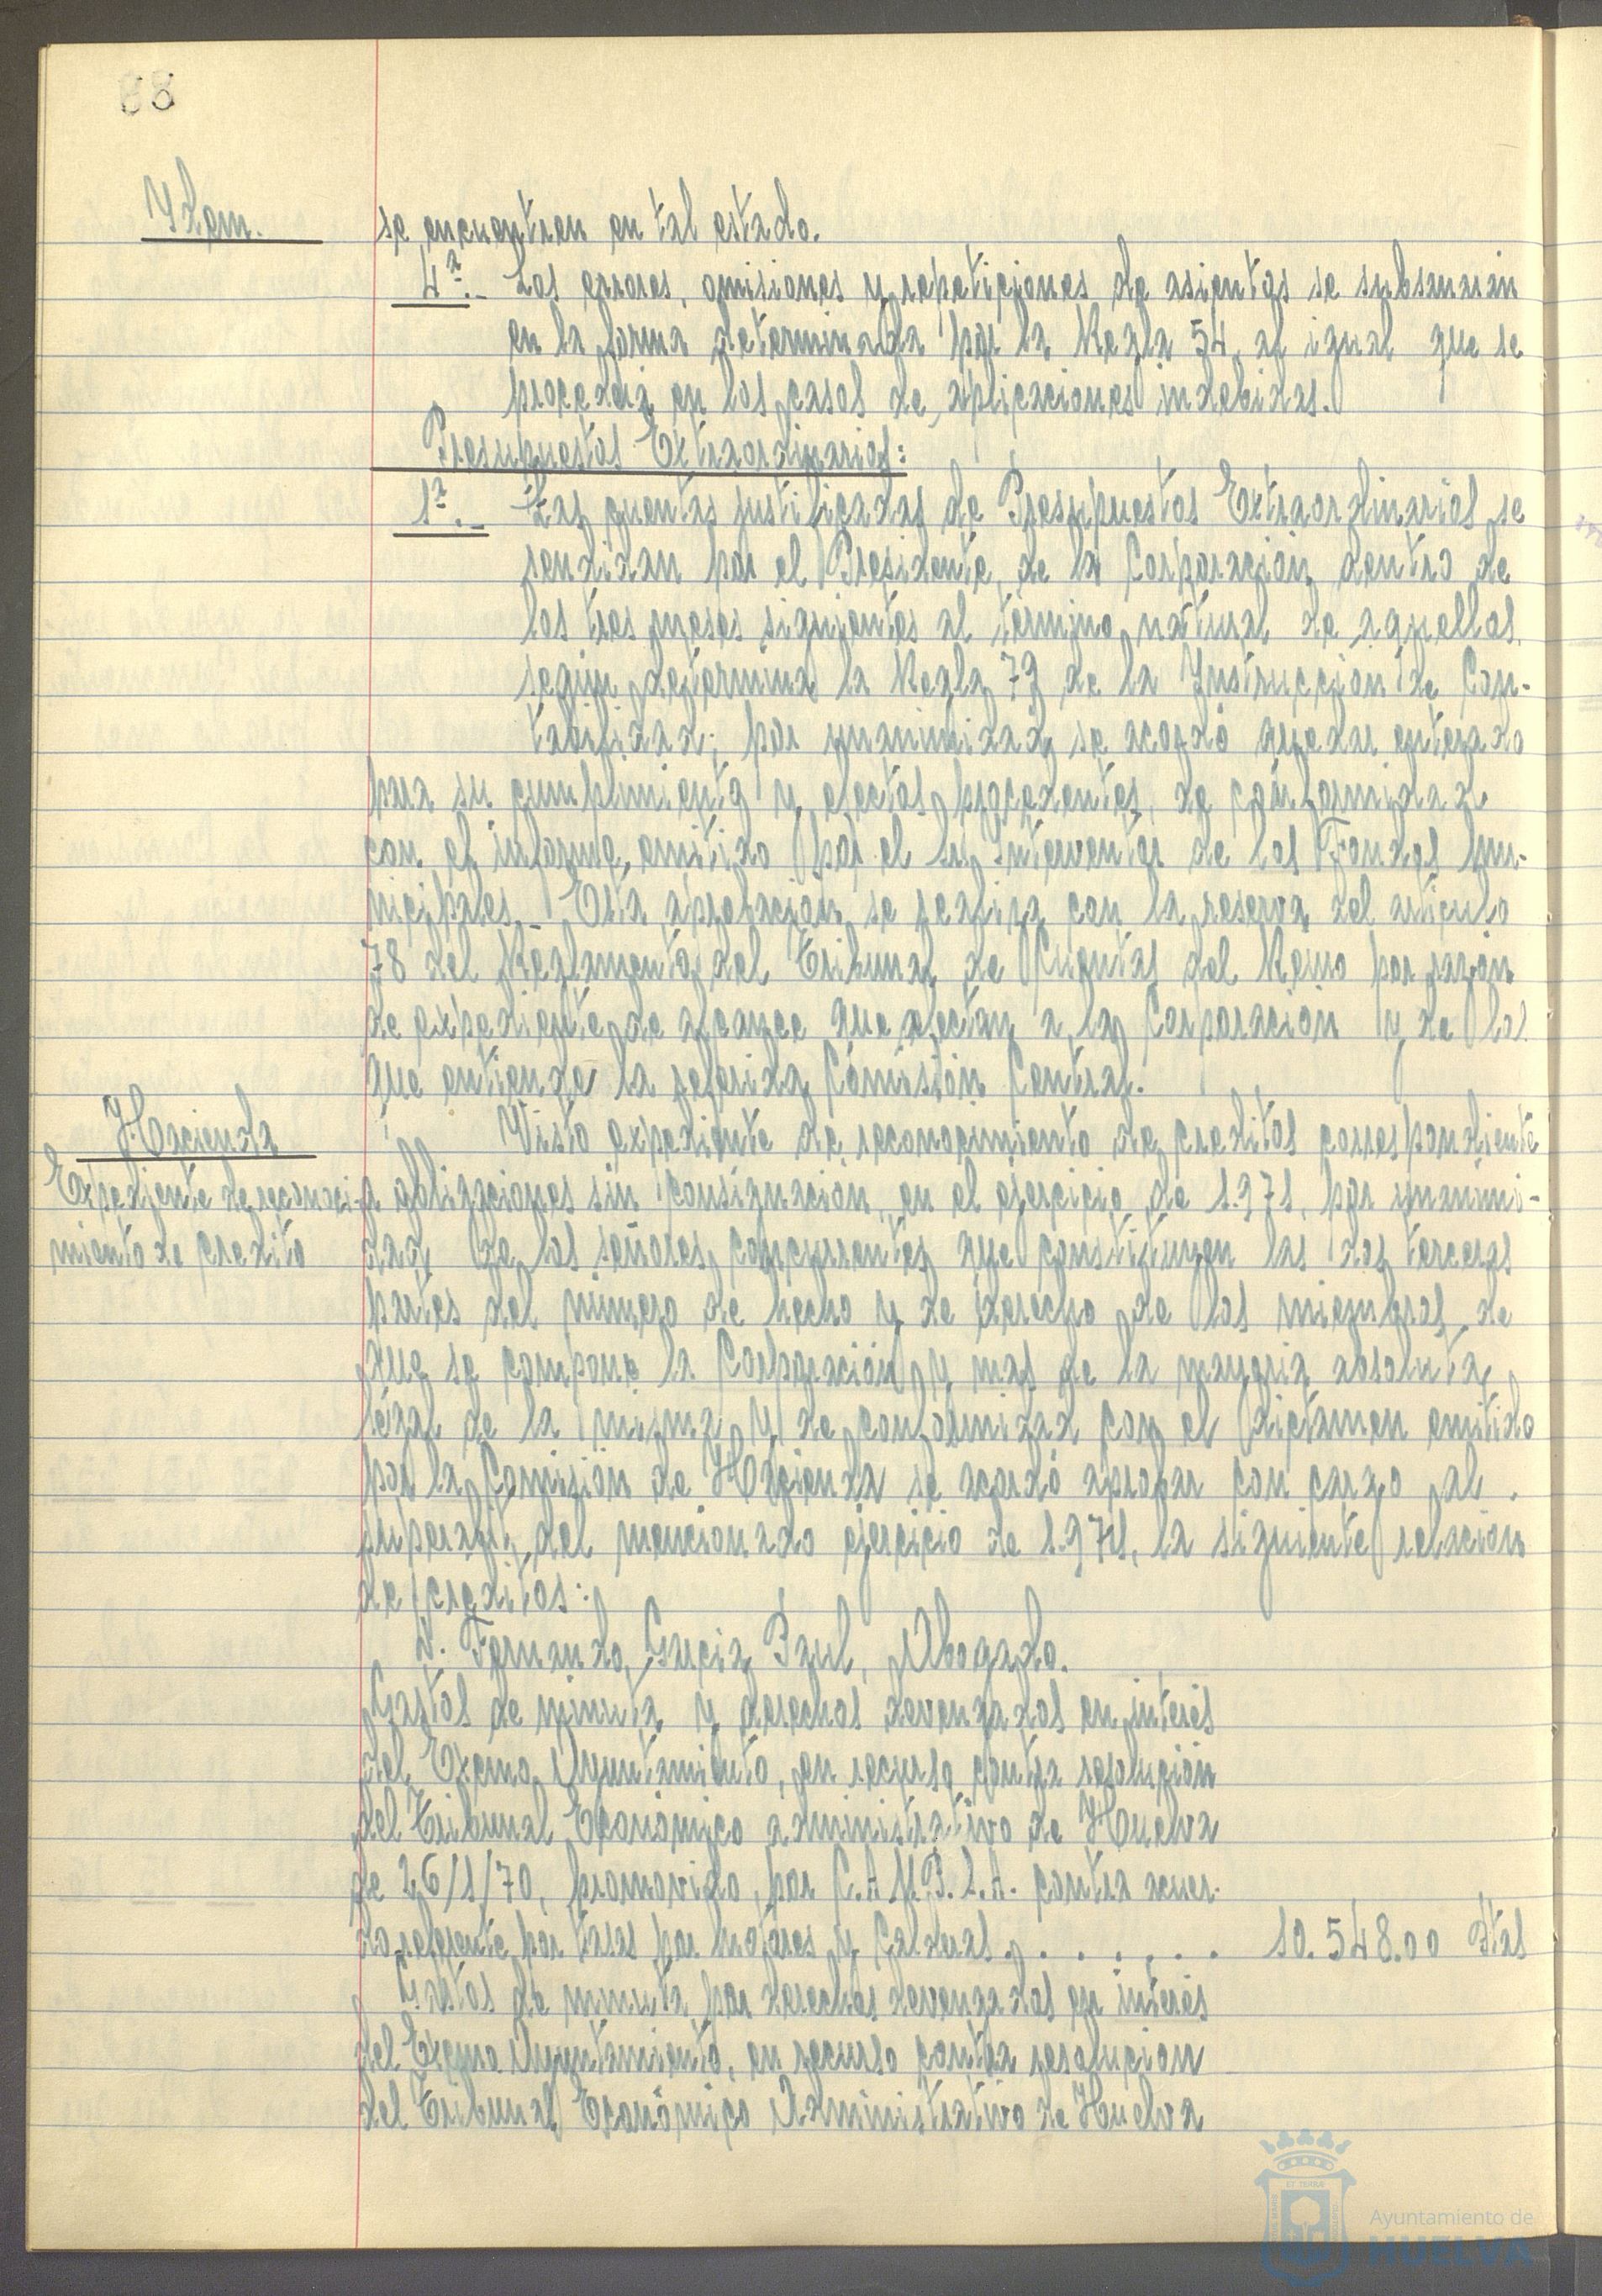 88
Ydem.
se encuentren en tal estado.
4ª.- Los errores, omisiones y repeticiones de asientos se subsanarán
en la forma determinada por la Regla 54, al igual que se
procederá en los casos de aplicaciones indebidas.
Presupuestos Extraordinarios:
1ª.- Las cuentas justificadas de Presupuestos Extraordinarios se
rendidan por el Presidente de la Corporación dentro de
los tres meses siguientes al término natural de aquellos,
según determina la Regla 79 de la Instrucción de Con-
tabilidad; por unanimidad, se acordó quedar enterado
para su cumplimiento y efectos procedentes, de conformidad
con el informe emitido por el Sr. Interventor de los Fondos Mu-
nicipales.- Esta aprobación se realiza con la reserva del articulo
78 del Reglamento del Tribunal de Cuentas del Reino por razón
de expediente de alcance que afectan a la Corporación y de los
que entiende la referida Comisión Central.
Hacienda
Expediente de reconoci-
miento de credito
Visto expediente de reconocimiento de creditos correspondiente
a obligaciones sin consignación, en el ejercicio de 1.971, por unanimi-
dad de los señores concurrentes que constituyen las dos terceras
partes del número de hecho y de derecho de los miembros de
que se compone la Corporación y mas de la mayoria absoluta
legal de la misma y de conformidad con el dictamen emitido
por la Comisión de Hacienda se acordó aprobar con cargo al
superavit del mencionado ejercicio de 1.971, la siguiente relación
de creditos:
D. Fernando Garcia Paul, Abogado.
Gastos de minuta y derechos devengados en interés
del Excmo Ayuntamiento, en recurso contra resolución
del Tribunal Económico administrativo de Huelva
de 26/1/70, promovido por C.A.M.P.S.A. contra acuer-
do referente por tasas por motores y Calderas . . . . . . . 10.548.00 Ptas
Gastos de minuta por derechos devengados en interés
del Excmo Ayuntamiento, en recurso contra resolución
del Tribunal Económico Administrativo de Huelva
Ayuntamiento de
HUELVA